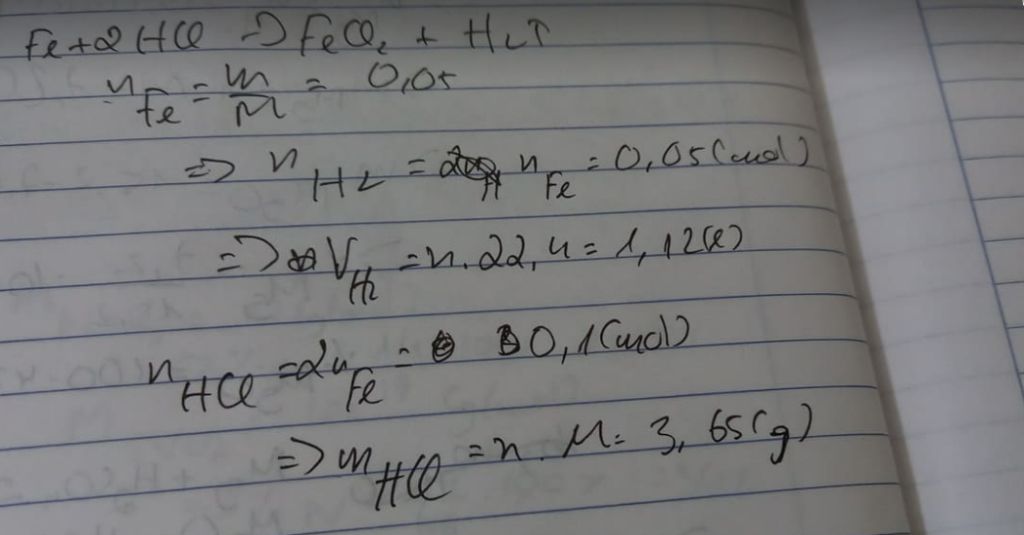 Fe + 2HCl → FeCl₂ + H₂↑
n_Fe = m/M = 0,05
=> n_H₂ = n_Fe = 0,05 (mol)
=> V_H₂ = n.22,4 = 1,12(l)
n_HCl = 2n_Fe = 0,1 (mol)
=> m_HCl = n.M = 3,65(g)